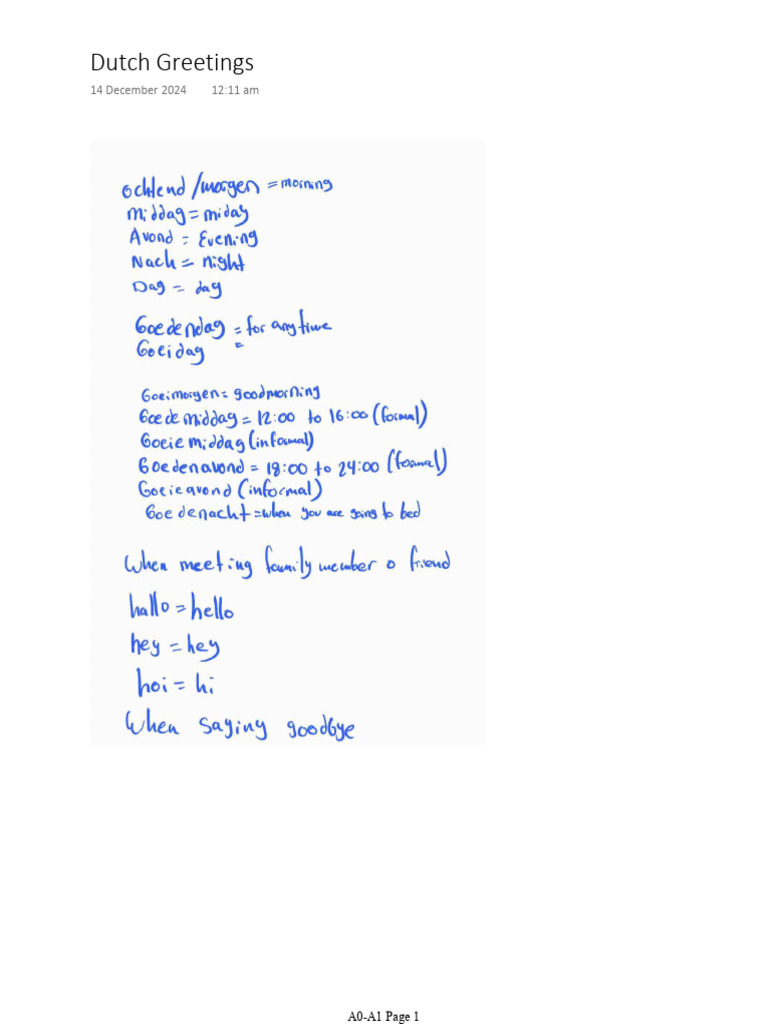 Dutch Greetings
14 December 2024 12:11 am
ochtend /morgen = morning
Middag = miday
Avond = Evening
Nach = night
Dag = day
Goedendag = for anytime
Goeidag =
Goeimorgen = goodmorning
Goede middag = 12:00 to 16:00 (formal)
Goeie middag (informal)
Goedenavond = 18:00 to 24:00 (formal)
Goeieavond (informal)
Goedenacht = when you are going to bed
When meeting family member o friend
hallo = hello
hey = hey
hoi = hi
When saying goodbye
A0-A1 Page 1